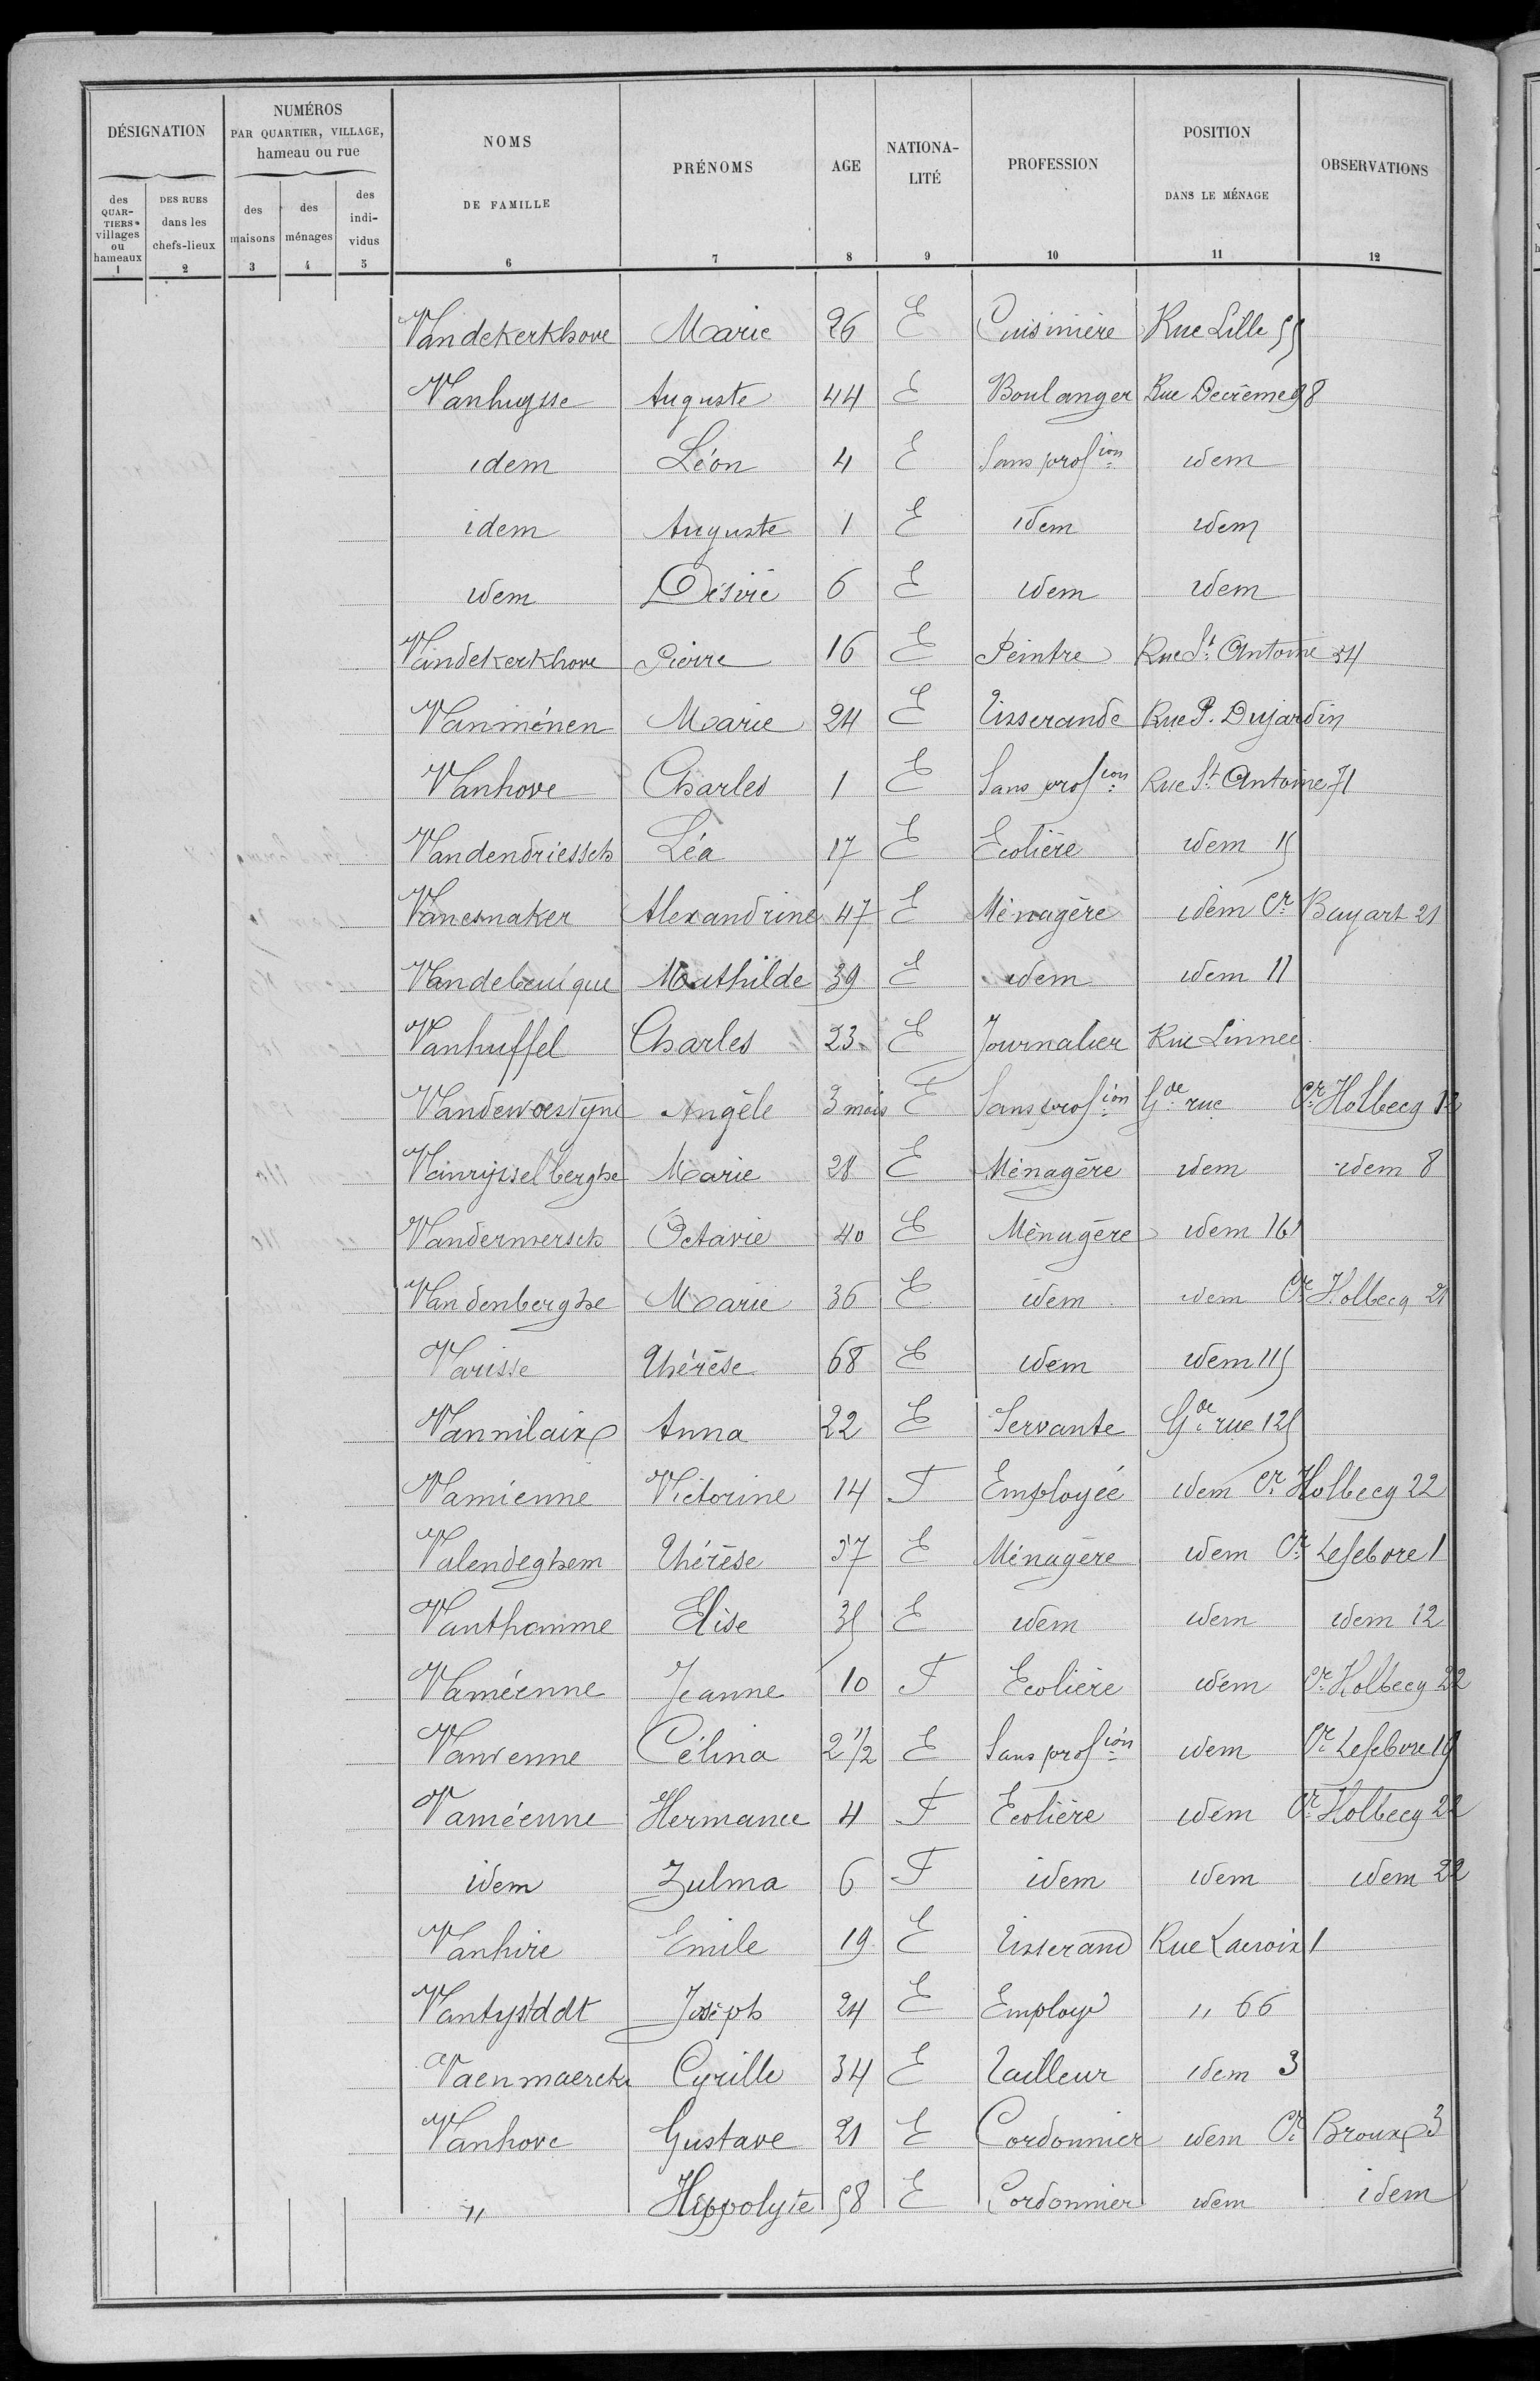 DÉSIGNATION
NUMÉROS
PAR QUARTIER, VILLAGE,
hameau ou rue
NOMS
DE FAMILLE
PRÉNOMS
AGE
NATIONA-
LITÉ
PROFESSION
POSITION
DANS LE MÉNAGE
OBSERVATIONS
des
QUAR-
TIERS
villages
ou
hameaux
DES RUES
dans les
chefs-lieux
des
maisons
des
ménages
des
indi-
vidus
1 2 3 4 5 6 7 8 9 10 11 12
Vandekerkhove Marie 26 E Cuisinière Rue Lille 55
Vanhuysse Auguste 44 E Boulanger Rue Decrème 98
idem Léon 4 E Sans profion idem
idem Auguste 1 E idem idem
idem Désiré 6 E idem idem
Vandekerkhove Pierre 16 E Peintre Rue St Antoine 54
Vanménen Marie 24 E Tisserande Rue P. Dujardin
Vanhove Charles 1 E Sans profion Rue St Antoine 71
Vandendriessch Léa 17 E Ecolière idem 15
Vanesnaker Alexandrine 47 E Ménagère idem Cr Bayart 21
Mathilde 39 E idem idem 11
Vanhuffel Charles 23 E Journalier Rue Linneé
Vandewoestyne Angèle 3 mois E Sans profion Gde rue Cr Holbecq 12
Vanrijsselberghe Marie 28 E Ménagère idem idem 8
Vandermersch Octavie 40 E Ménagère idem 161
Vandenberghe Marie 36 E idem idem Cr Holbecq 21
Varisse Thérèse 68 E idem idem 115
Vannilaix Anna 22 E Servante Gde rue 125
Vamienne Victorine 14 F Employée idem Cr Holbecq 22
Valendeghem Thérèse 37 E Ménagère idem Cr Lefebvre 1
Vanthomme Elise 35 E idem idem idem 12
Vaméenne Jeanne 10 F Ecolière idem Cr Holbecq 22
Vanvenne Célina 2 1/2 E Sans profion idem Cr Lefebvre 19
Vaméenne Hermance 4 F Ecolière idem Cr Holbecq 22
idem Zulma 6 F idem idem idem 22
Vanhire Emile 19 E Tisserand Rue Lacroix 1
Vantystddt Joseph 24 E Employé " 66
Vaenmaercke Cyrille 34 E Tailleur idem 3
Vanhove Gustave 21 E Cordonnier idem Cr Broux 3
" Hippolyte 58 E Cordonnier idem idem